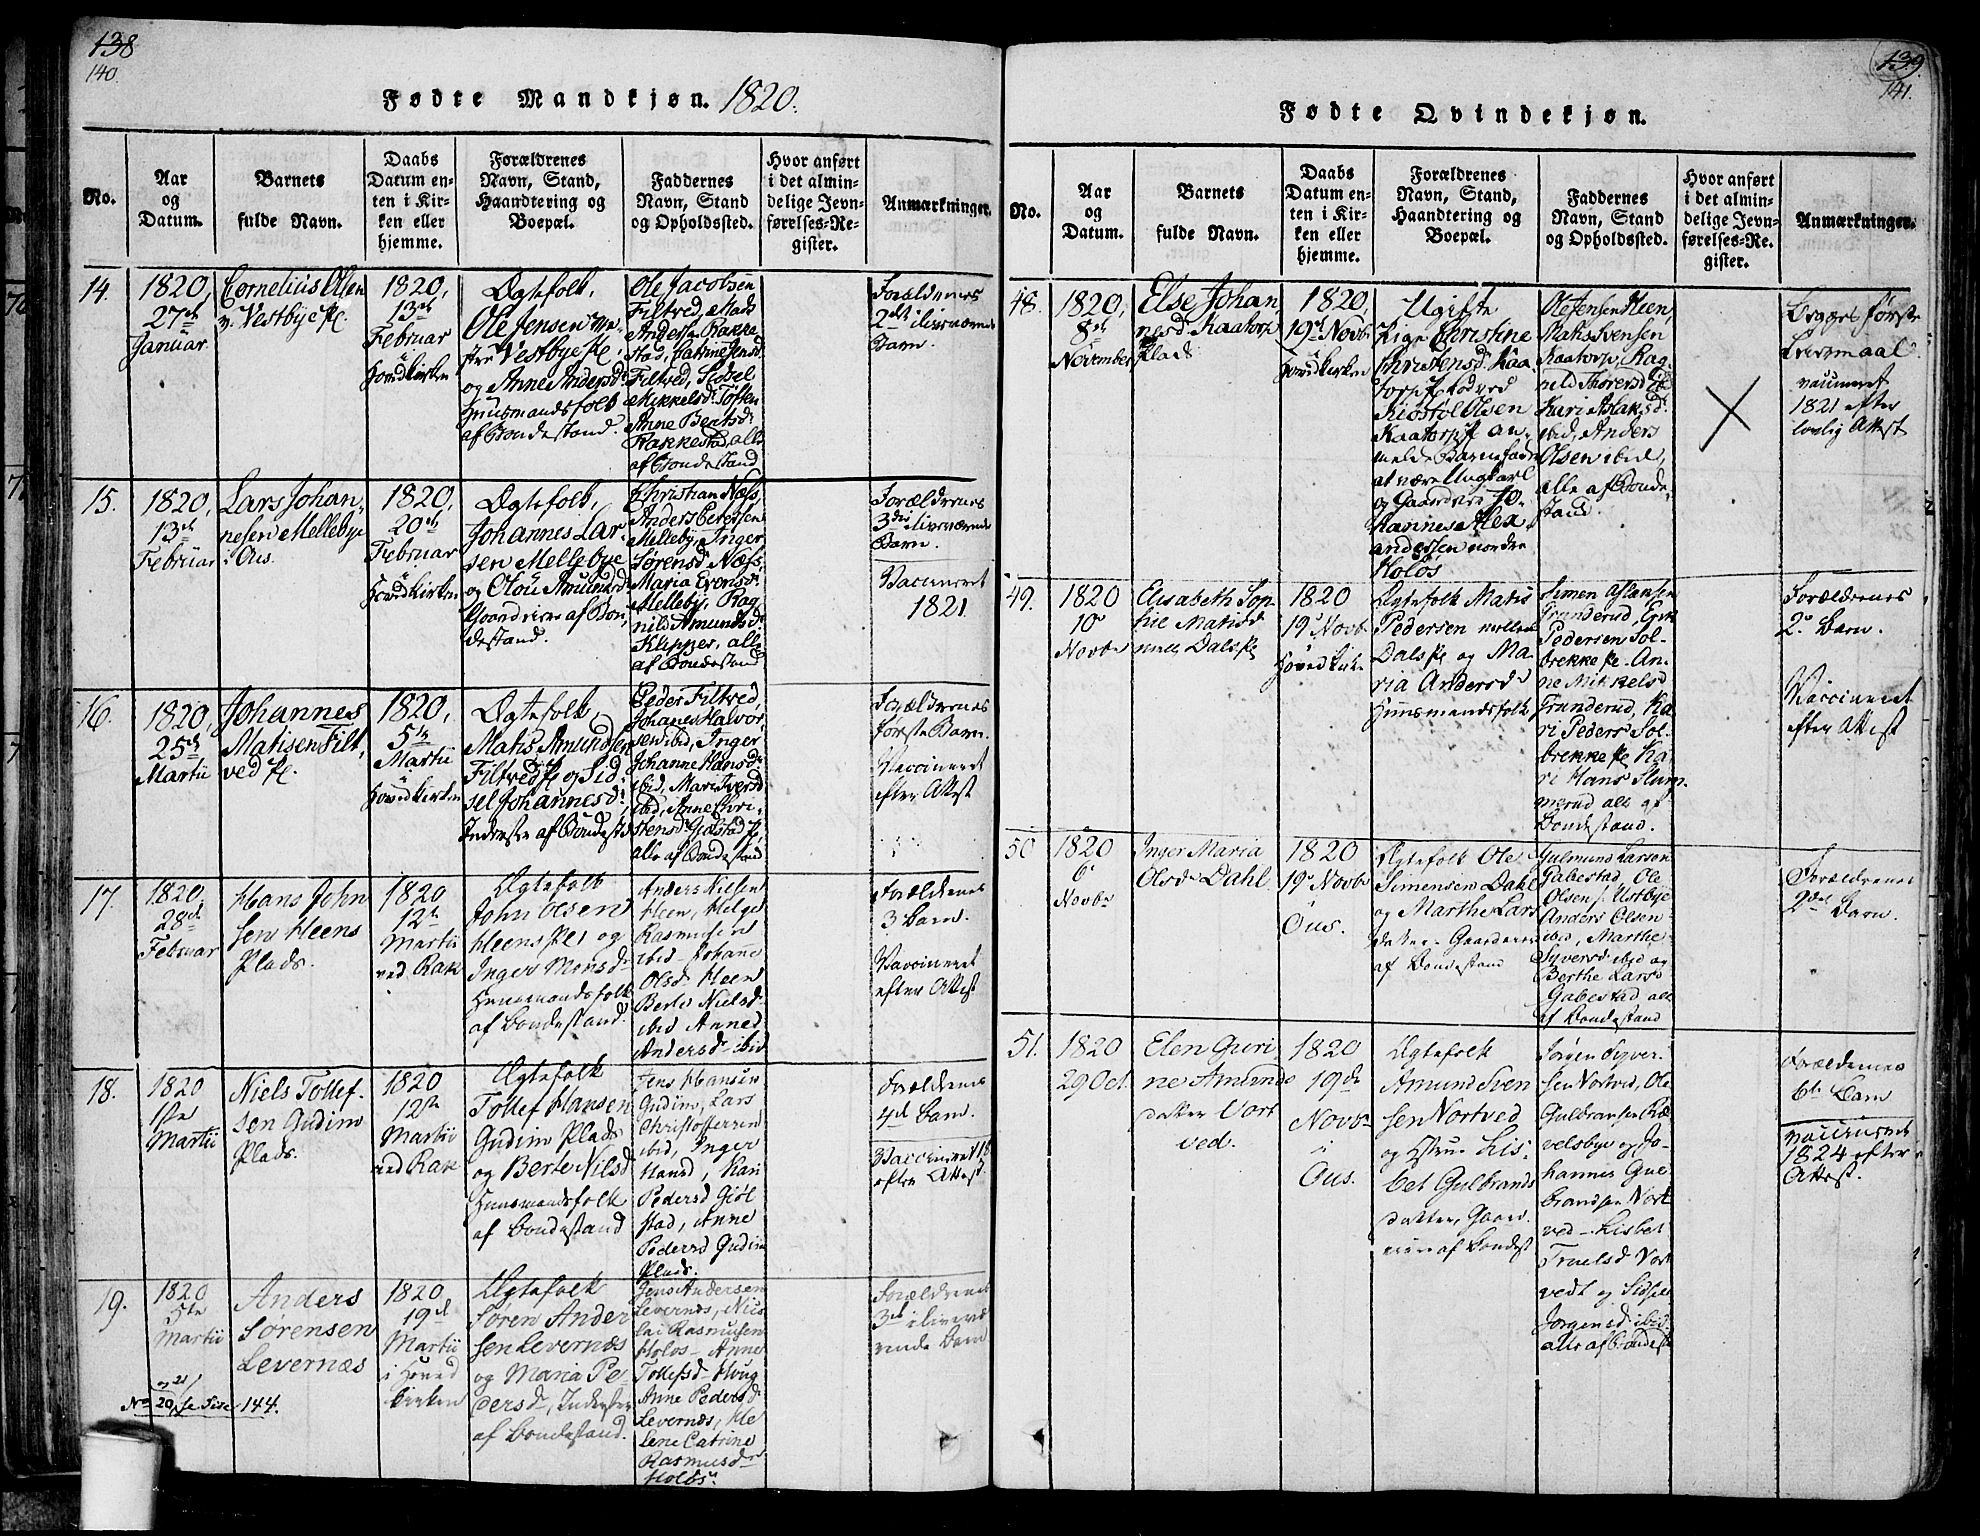 138
140.
Fødte Mandkjøn. 1820.
No.
Aar
og
Datum.
Barnets
fulde Navn.
Daabs
Datum en-
ten i Kir-
ken eller
hjemme.
Forældrenes
Navn, Stand,
Haandtering og
Boepæl.
Faddernes
Navn, Stand
og Opholdssted.
Hvor anført
i det almin-
delige Jevn-
førelses-Re-
gister.
Anmærkninger.
14.
1820,
27de
Januar
Cornelius Olsen
v. Vestbye Pl.
1820,
13de
Februar
i
Hovedkirken
Ægtefolk,
Ole Jensen
Vestbye Pl.
og Anne Andersd:
Huusmandsfolk
af Bondestand.
Ole Jacobsen
Filtved, Mads
Anders. Rakke
stad, Cathrine Jensd
Filtved, Sidsel
Mikkelsd: Toften
Anne Berthsd:
Rakkestad, alle
af Bondestand
Forældrenes
2det ilivværende
Barn.
15.
1820,
13de
Februar
Lars Johan-
nesen Mellebye
i Ous
1820,
20de
Februar
i
Hovedkirken
Ægtefolk,
Johannes Lar-
sen Mellebye
og Olou Amundsd:
Gaardbrugere af Bon-
destand.
Christian Næss,
Anders Beressen
Melleby, Inger
Sørensd Næss,
Maria Evensd:
Melleby, Rag-
nild Amundsd:
Klipper, alle
af Bondestand
Forældrenes
3die ilivværende
Barn.
Vaccineret
1821.
16.
1820,
25de
Martii
Johannes
Matisen Filt-
ved Pl.
1820,
5te
Martii
i
Hovedkirken
Ægtefolk,
Matis Amundsen
Filtved Pl og Sid-
sel Johannesd:
Inderster af Bondestd
Peder Filtved,
Johanes Halvor-
sen ibid, Inger
Johanne Hansd:
ibid, Mari Iversd
ibid, Anne Chri-
stensd: Gjølstad Pl,
alle af Bondestand
Forældrenes
første Barn.
Vaccineret
efter Attest
17.
1820,
28de
Februar
Hans John
sen Heens
Plads.
1820
12te
Martii
ved Rak
Ægtefolk
John Olsen
Heens Pls og
Inger Monsd:
Huusmandsfolk
af Bondestand.
Anders Nilsen
Heen, Helge
Rasmusen
ibid - Johanne
Olsd: Heen
Berte Nielsd
ibid Anne
Andersd: ibid
Forældrenes
3 Barn.
Vaccineret
efter Attest
18.
1820
1ste
Martii
Niels Tollef-
sen Gudim
Plads.
1820
12te
Martii
ved Rak
Ægtefolk
Tollef Hansen
Gudim Plads
og Berte Nilsd
Huusmandsfolk
af Bondestand
Jens Hansen
Gudim, Lars
Christoffersen
ibid, Inger
Hansd, Kari
Pedersd Giøl
stad, Anne
Pedersd Gudim
Plads.
Forældrenes
4de Barn.
Vaccineret 18
efter Attest
19.
1820
5te
Martii
Anders
Sørensen
Levernæs
1820
19de
Martii
i Hoved
kirken
Ægtefolk
Søren Ander
sen Levernæs
og Maria Pe-
dersd, Inderster
af Bondestand.
Jens Andersen
Levernæs, Nico
lai Rasmusen
Holøs - Anne
Tollefsd Haug
Anne Pedersd
Levernæs, He
lene Catrine
Rasmusd
Holøs
Forældrenes
3de iliverend
rende Barn
og 21
No 20, se Side 144.
139
141.
Fødte Qvindekjøn.
No.
Aar
og
Datum.
Barnets
fulde Navn.
Daabs
Datum en-
ten i Kir-
ken eller
hjemme.
Forældrenes
Navn, Stand,
Haandtering og
Boepæl.
Faddernes
Navn, Stand
og Opholdssted.
Hvor anført
i det almin-
delige Jevn-
førelses-Re-
gister.
Anmærkninger.
48.
1820,
8de
November
Else Johan-
nesd: Kaatorp
Plads
1820,
19de Novbr
i
Hovedkirken
Ugifte
Pige Christine
Christensd: Kaa
torp Pl
Kiostol Olsen
Kaatorp Pl an-
meldt Barnefader
at være Ungkarl
og Gaardbrug. Jo-
hannes Alex-
andersen nordre
Holøs
Ole Jensen Heen,
Matis Svensen
Kaatorp, Rag-
nild Thorersd ibid
Kari Aslaksd:
ibid, Anders
Olsen ibid,
alle af Bonde-
stand.
Begges første
Leiermaal.
vaccineret
1821 efter
lovlig Attest
49.
1820
10de
Novbr
Elisabeth Sop-
hie Matisd
Dals Pl
1820
19de Novbr
i
Hovedkirke
Ægtefolk Matis
Pedersen mellem
Dals Pl og Ma-
ria Andersd:
Huusmandsfolk
Simen Aslaksen
Grønderud, Erik
Pedersen Sol-
brekke Pl. An-
ne Mikkelsd
Grønderud, Ka-
ri Pedersd Sol-
brekke Pl Ka-
ri Hans Slum-
merud alle af
Bondestand.
Forældrenes
2det Barn.
Vaccineret
efter Attest
50
1820
6te
Novbr
Inger Maria
Olsdr Dahl
1820
19de Novbr
i
Ous.
Ægtefolk Ole
Simensen Dahl
og Marthe Lars
datter - Gaardbrug
af Bondestand
Gulmund Larsen
Gabestad, Ole
Olsen s. Ustbye
Anders Olsen
ibid, Marthe
Syversd ibid og
Berthe Larsd
Gabestad, alle
af Bondestand
Forældrenes
2det Barn.
51.
1820
29 Oct.
Elen Guri
ne Amunds
datter Nort
ved.
1820
19de
Novbr
i
Ous.
Ægtefolk
Amund Sven
sen Nortved
og Hustrue Lis-
bet Gulbrands
datter, Gaard
af Bondest
Søren Syver-
sen Nortved, Ole
Gulbransen Ræ
velsbye og Jo-
hannes Gul-
brandsen Nort
ved - Lisbet
Truelsd Nort
vedt og Sidsel
Jørgensd: ibid
alle af Bondestd
Forældrenes
6te Barn
vaccineret
1824 efter
Attest.